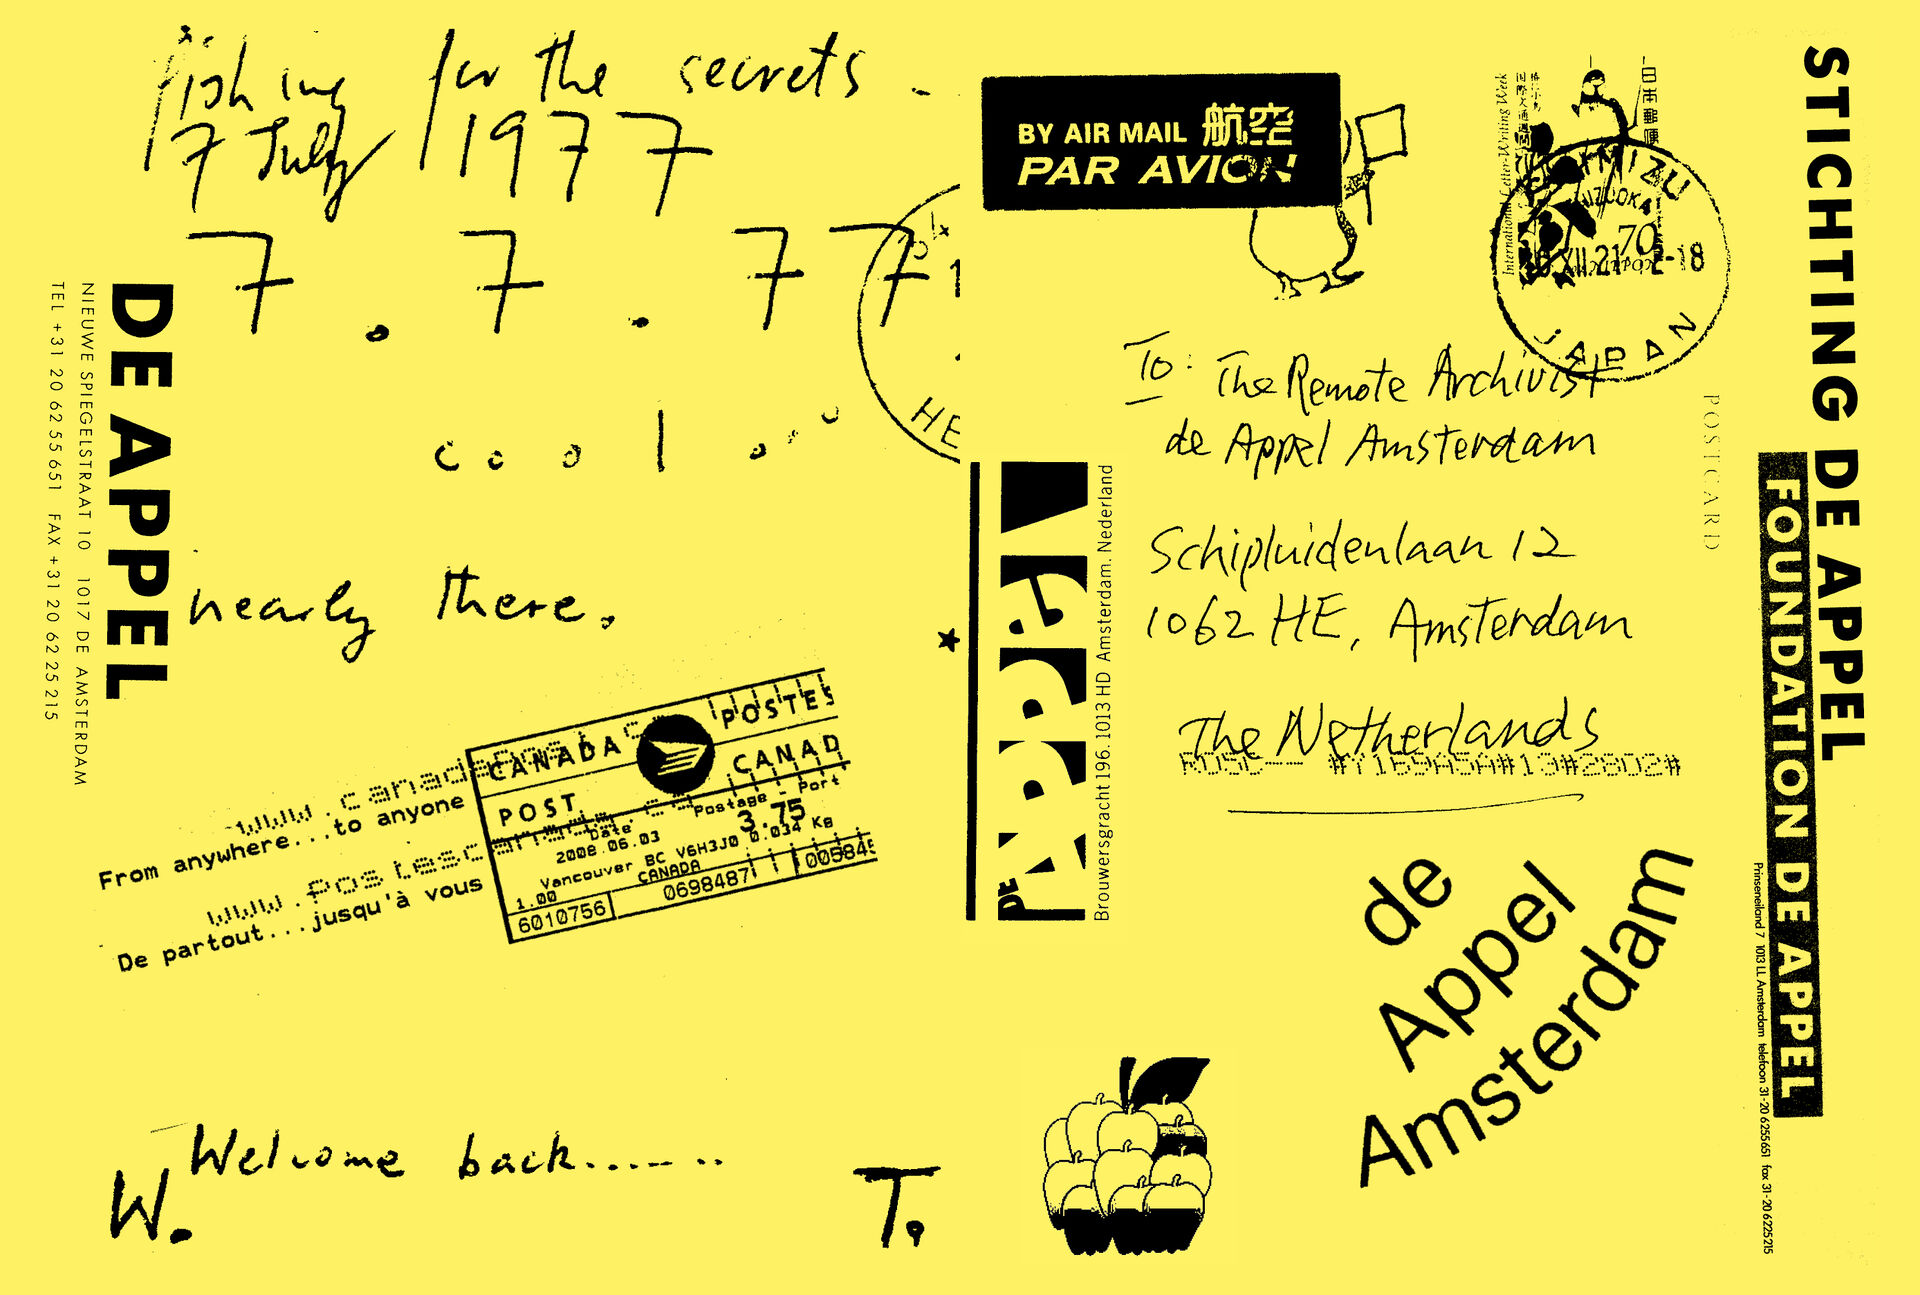 fishing for the secrets.
7 July 1977
7.7.77
cool...
nearly there.
DE APPEL
NIEUWE SPIEGELSTRAAT 10 1017 DE AMSTERDAM
TEL +31 20 62 55 651 FAX +31 20 62 25 215
HE
CANADA POSTES
POST CANAD
Postage - Port
Date
3.75
2008.06.03
0.034 Kg
Vancouver BC V6H3J0
CANADA
1.00
6010756
0698487
From anywhere...to anyone
De partout...jusqu'à vous
Welcome back.......
W.
T.
BY AIR MAIL 航空
PAR AVION
日本郵便
国際文通週間
International Letter-Writing Week
70
JAPAN
To: The Remote Archivist
de Appel Amsterdam
Schipluidenlaan 12
1062 HE, Amsterdam
The Netherlands
POSTCARD
DE APPEL
Brouwersgracht 196. 1013 HD Amsterdam. Nederland
de
Appel
Amsterdam
STICHTING DE APPEL
FOUNDATION DE APPEL
Prinseneiland 7 1013 LL Amsterdam telefoon 31-20 6255651 fax 31-20 6225215